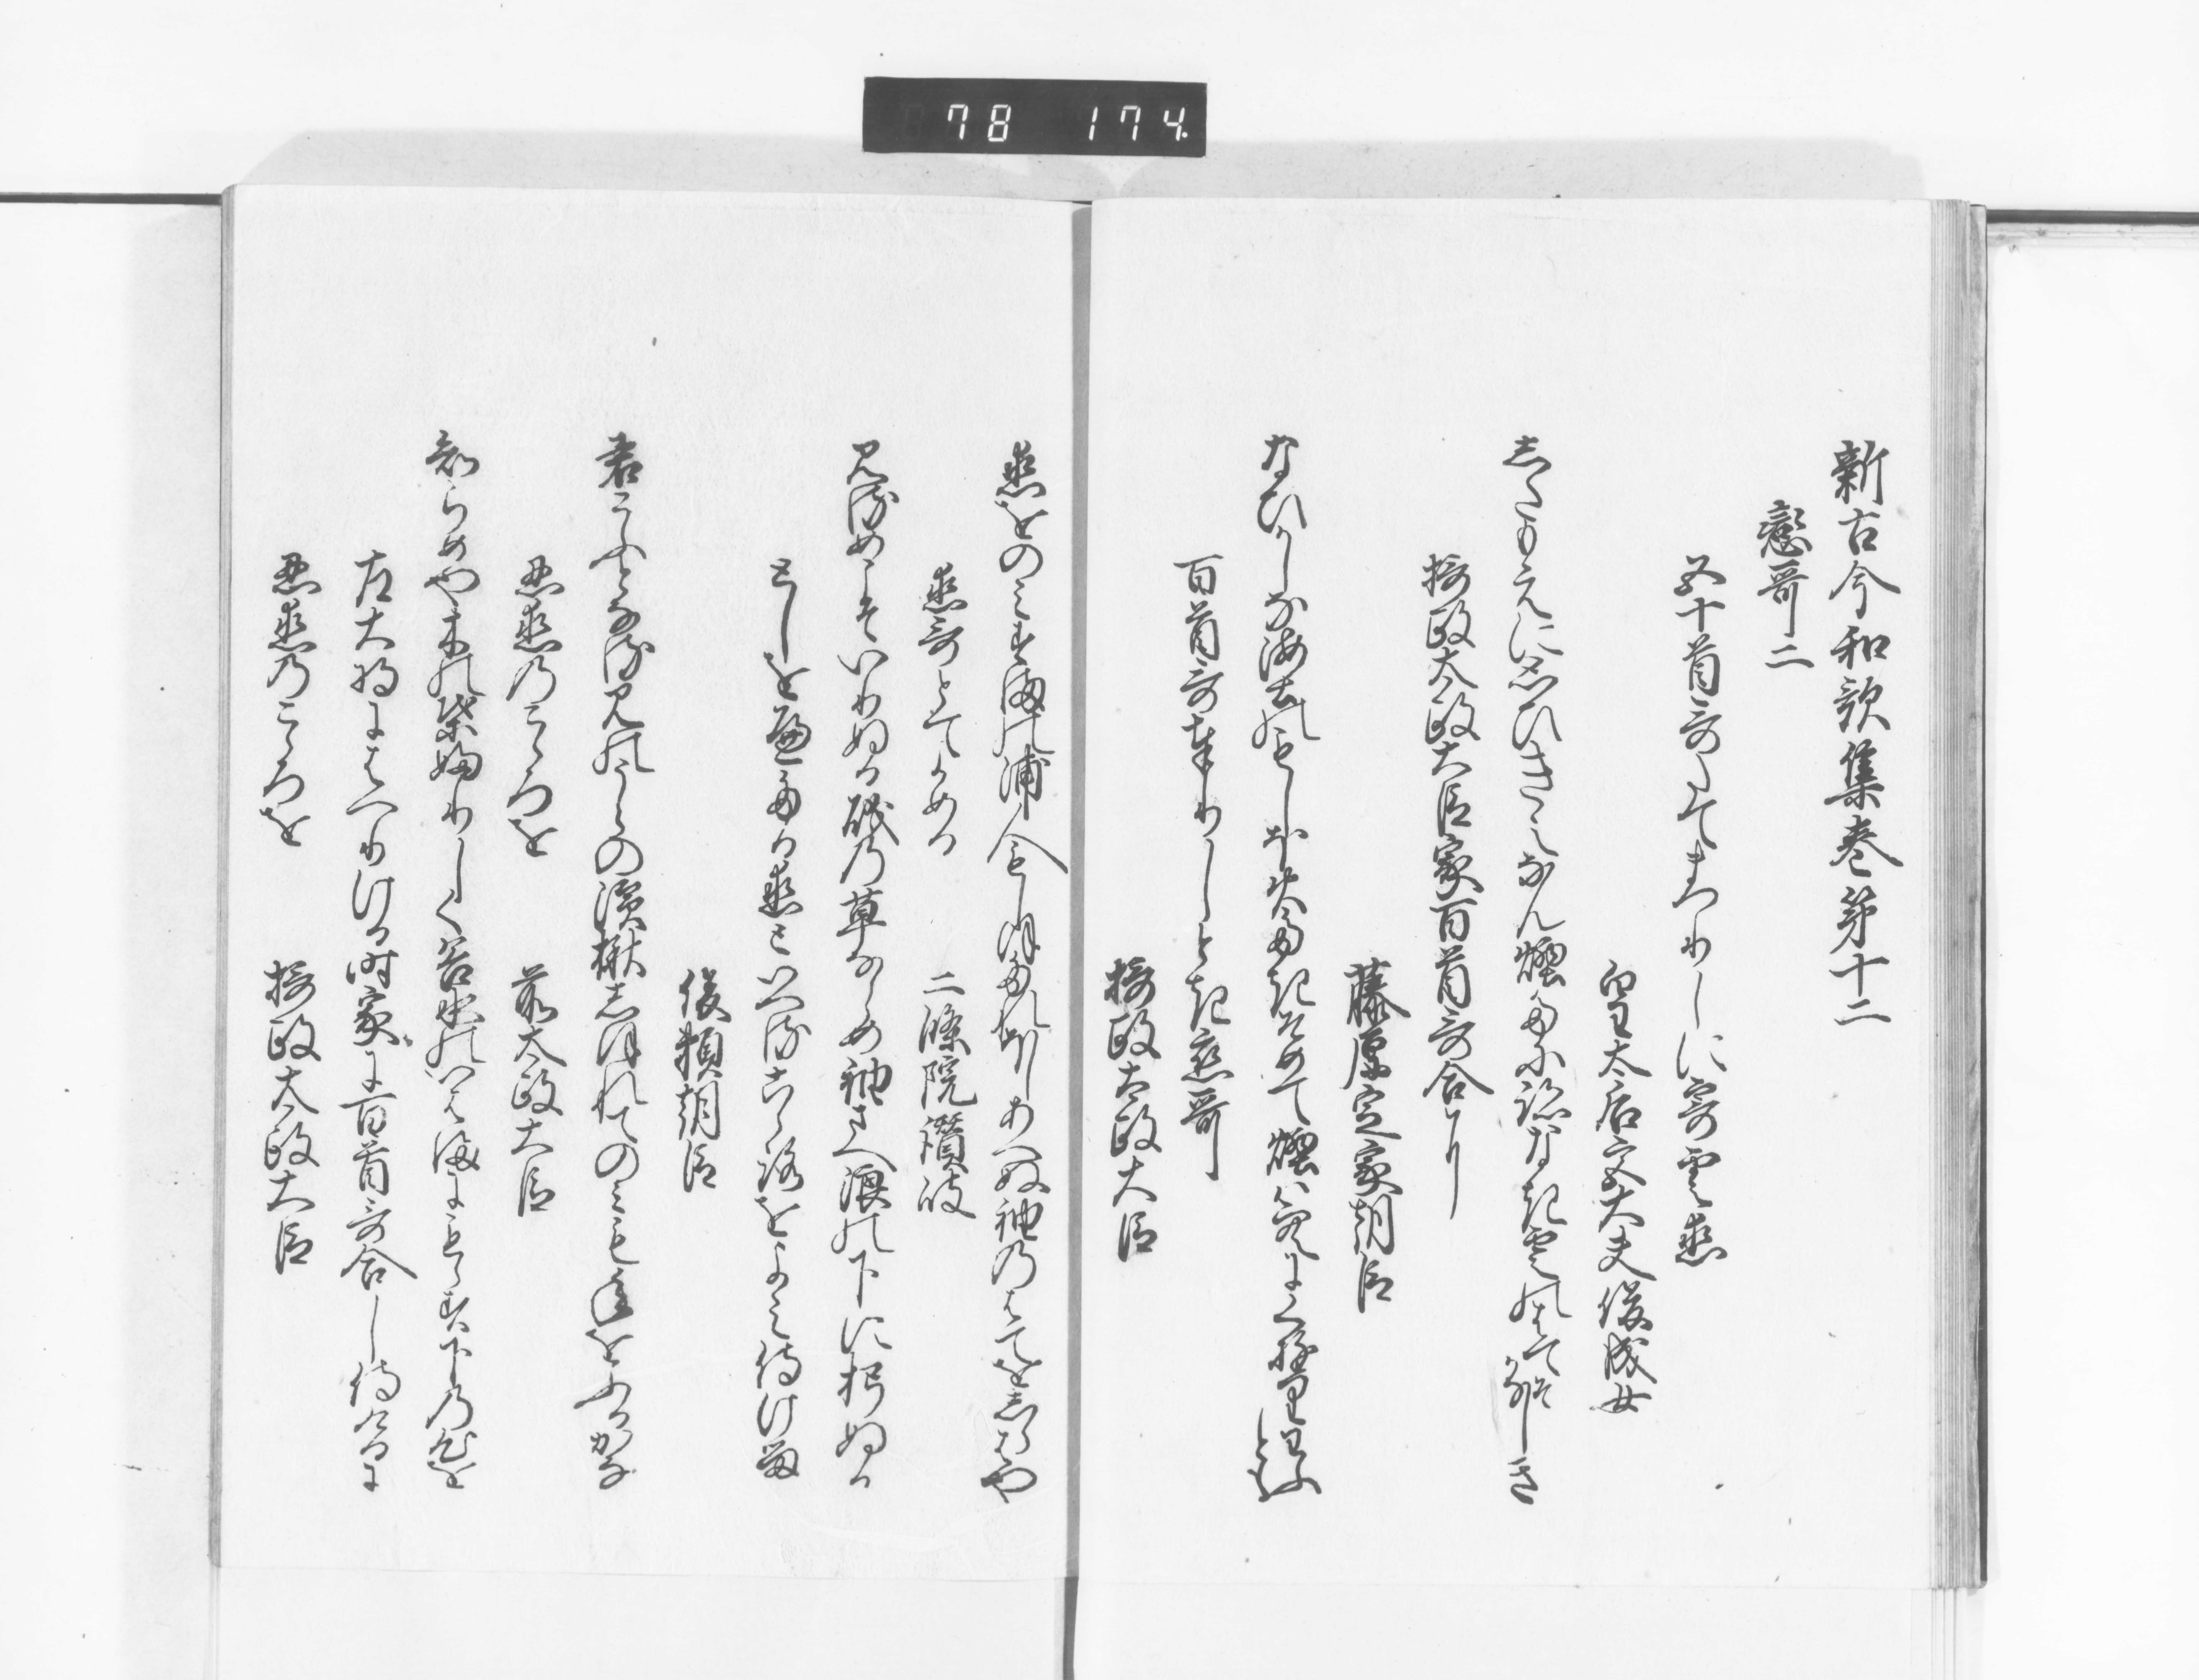 78 174.
新古今和歌集巻第十二
戀哥二
五十首哥たてまつりしに寄雲恋
皇太后宮大夫俊成女
志たもえに思ひきえなん煙たに跡なき雲のはてそかなしき
摂政太政大臣家百首哥合に
藤原定家朝臣
なひかしな海士のもしほ火たきそめて煙は空にくゆりわふとも
百首哥奉りしとき恋哥
摂政太政大臣
恋をのみすまの浦人もしほたれほしあへぬ袖のはてを志らはや
恋哥とてよめる
二條院讃岐
みるめこそいりぬる磯の草ならめ袖さへ浪の下に朽ぬる
としを歴たる恋といへるこゝろをよみ侍ける
俊頼朝臣
君こふとなるみのうらの濱楸志ほれてのみも年をふるかな
忍恋のこゝろを
前太政大臣
知らめや木の葉ふりしく谷水のいはまにもらす下の心を
左大将にはへりける時家に百首哥合し侍けるに
忍恋のこゝろを
摂政太政大臣